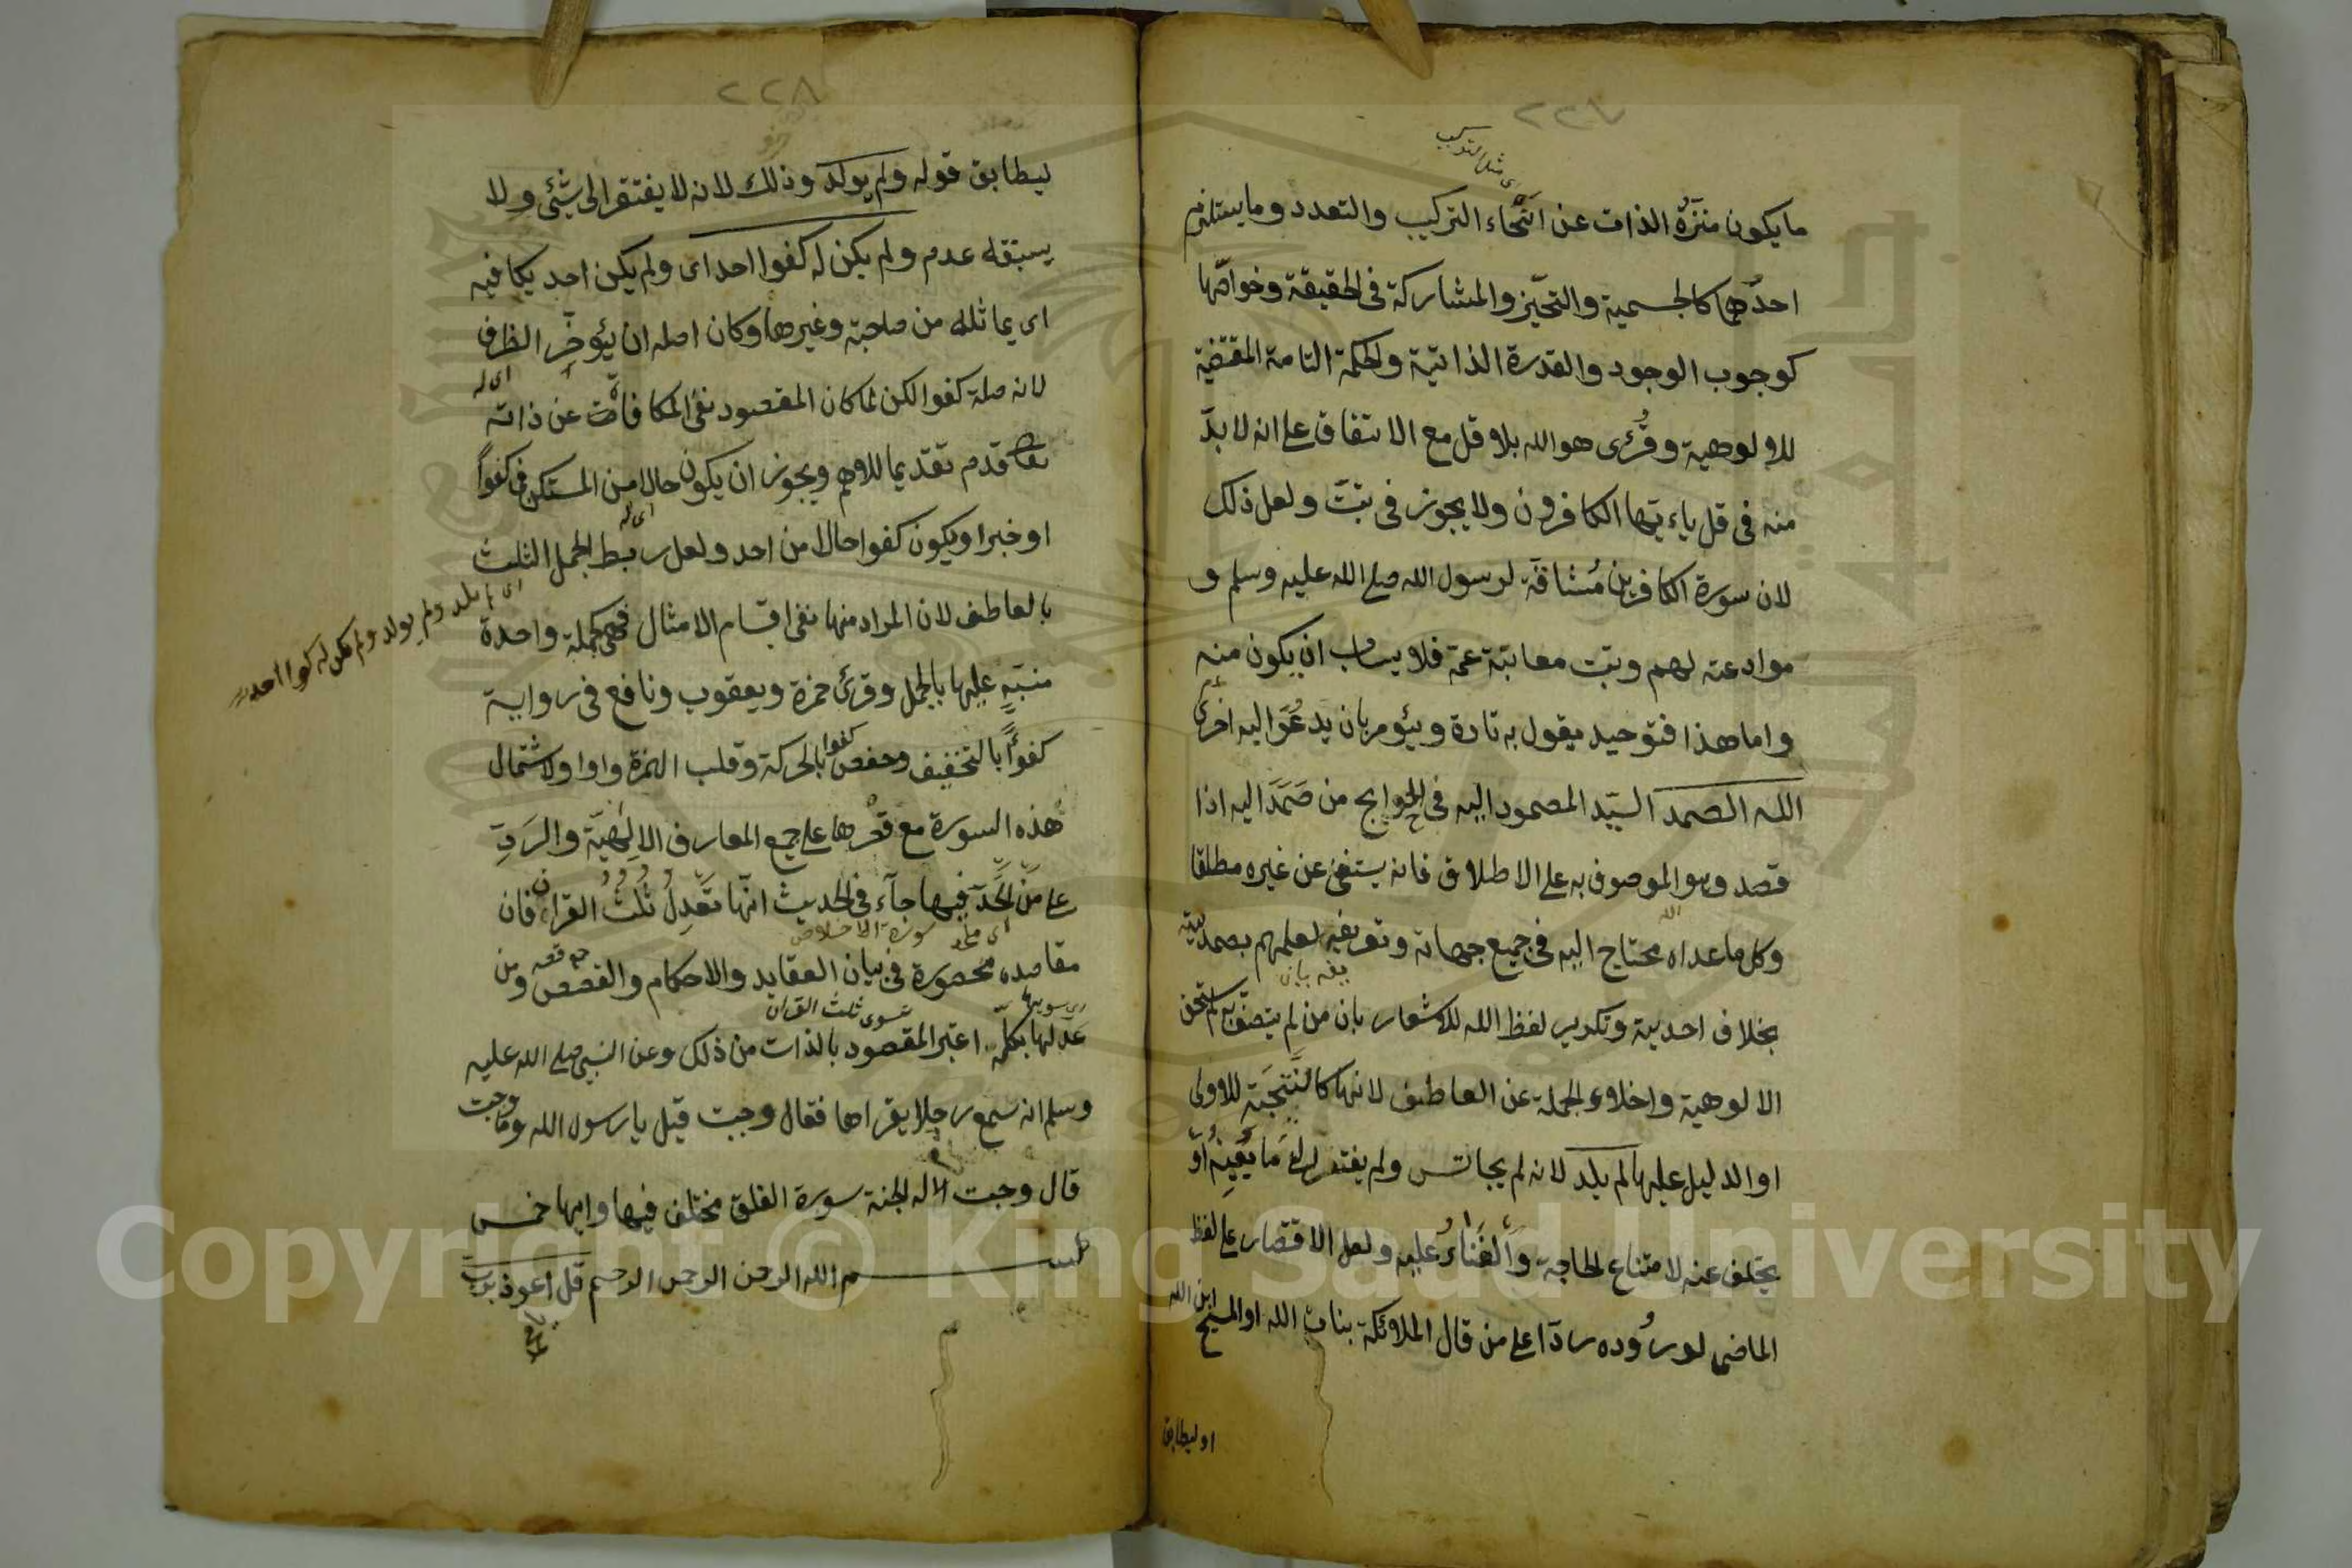 ٢٢٧
ما يكون منزّه الذات عن انحاء التركيب والتعدد وما يستلزم
احدهما كالجسمية والتحيّز والمشاركة فى الحقيقة وخواصّها
كوجوب الوجود والقدرة الذاتية والحكمة التامة المقتضية
للالوهية وقُرئ هو الله بلا قل مع الاتفاق على انه لا بدّ
منه فى قل ياءيّها الكافرون ولا يجوز فى تبّت ولعل ذلك
لان سورة الكافرين مُشاقّة لرسول الله صلى الله عليه وسلم و
موادعته لهم وتبت معاتبة عمّه فلا يناسب ان يكون منه
واما هذا فتوحيد يقول به تارة ويئومر بان يدعُوَ اليه اخرى
الله الصمد السيّد المصمود اليه فى الحوايج من صَمَدَ اليه اذا
قصد وهو الموصوف به على الاطلاق فانه يستغنى عن غيره مطلقا
وكل ما عداه محتاج اليه فى جميع جهاته وتعريفه لعلمهم بصمديته
بخلاف احديته وتكرير لفظ الله للاشعار بان من لم يتصف به لم يستحق
الالوهية واخلاء الجملة عن العاطف لانها كالنتيجة للاولى
او الدليل عليها لم يلد لانه لم يجانس ولم يفتقر الى ما يُعينه او
يخلف عنه لامتناع الحاجة والفناء عليه ولعل الاقتصار على لفظ
الماضى لوروده ردّا على من قال الملائكة بنات الله او المسيح ابن الله
او ليطابق
٢٢٨
ليطابق قوله ولم يولد وذلك لانه لا يفتقر الى شئى ولا
يسبقه عدم ولم يكن له كفوا احد اى ولم يكن احد يكافيه
اى يماثله من صاحبة وغيرها وكان اصله ان يئوخّر الظرف
لانه صلة كفوا لكن لما كان المقصود نفى المكافاة عن ذاته
قدم تقديما للاهم ويجوز ان يكون حالا من المستكن فى كفوًا
او خبرا ويكون كفوا حالا من احد ولعل ربط الجمل الثلث
اى لم يلد ولم يولد ولم يكن له كفوا احد
بالعاطف لان المراد منها نفى اقسام الامثال فهى كجملة واحدة
منبّه عليها بالجمل وقرئ حمزة ويعقوب ونافع فى رواية
كفوًا بالتخفيف وحفص كفوا بالحركة وقلب الهمزة واوا ولاشتمال
هذه السورة مع قصرها على جميع المعارف الالهيّة والردّ
على من الحد فيها جآء فى الحديث انّها تعدل ثلث القرآن فان
مقاصده محصورة فى بيان العقايد والاحكام والقصص ومن
عدلها بكلّه اعتبر المقصود بالذات من ذلك وعن النبى صلى الله عليه
وسلم انه سمع رجلا يقراها فقال وجبت قيل يا رسول الله وما وجبت
قال وجبت له الجنة سورة الفلق مختلف فيها وايها خمس
بسم الله الرحمن الرحيم قل اعوذ برب
Copyright © King Saud University